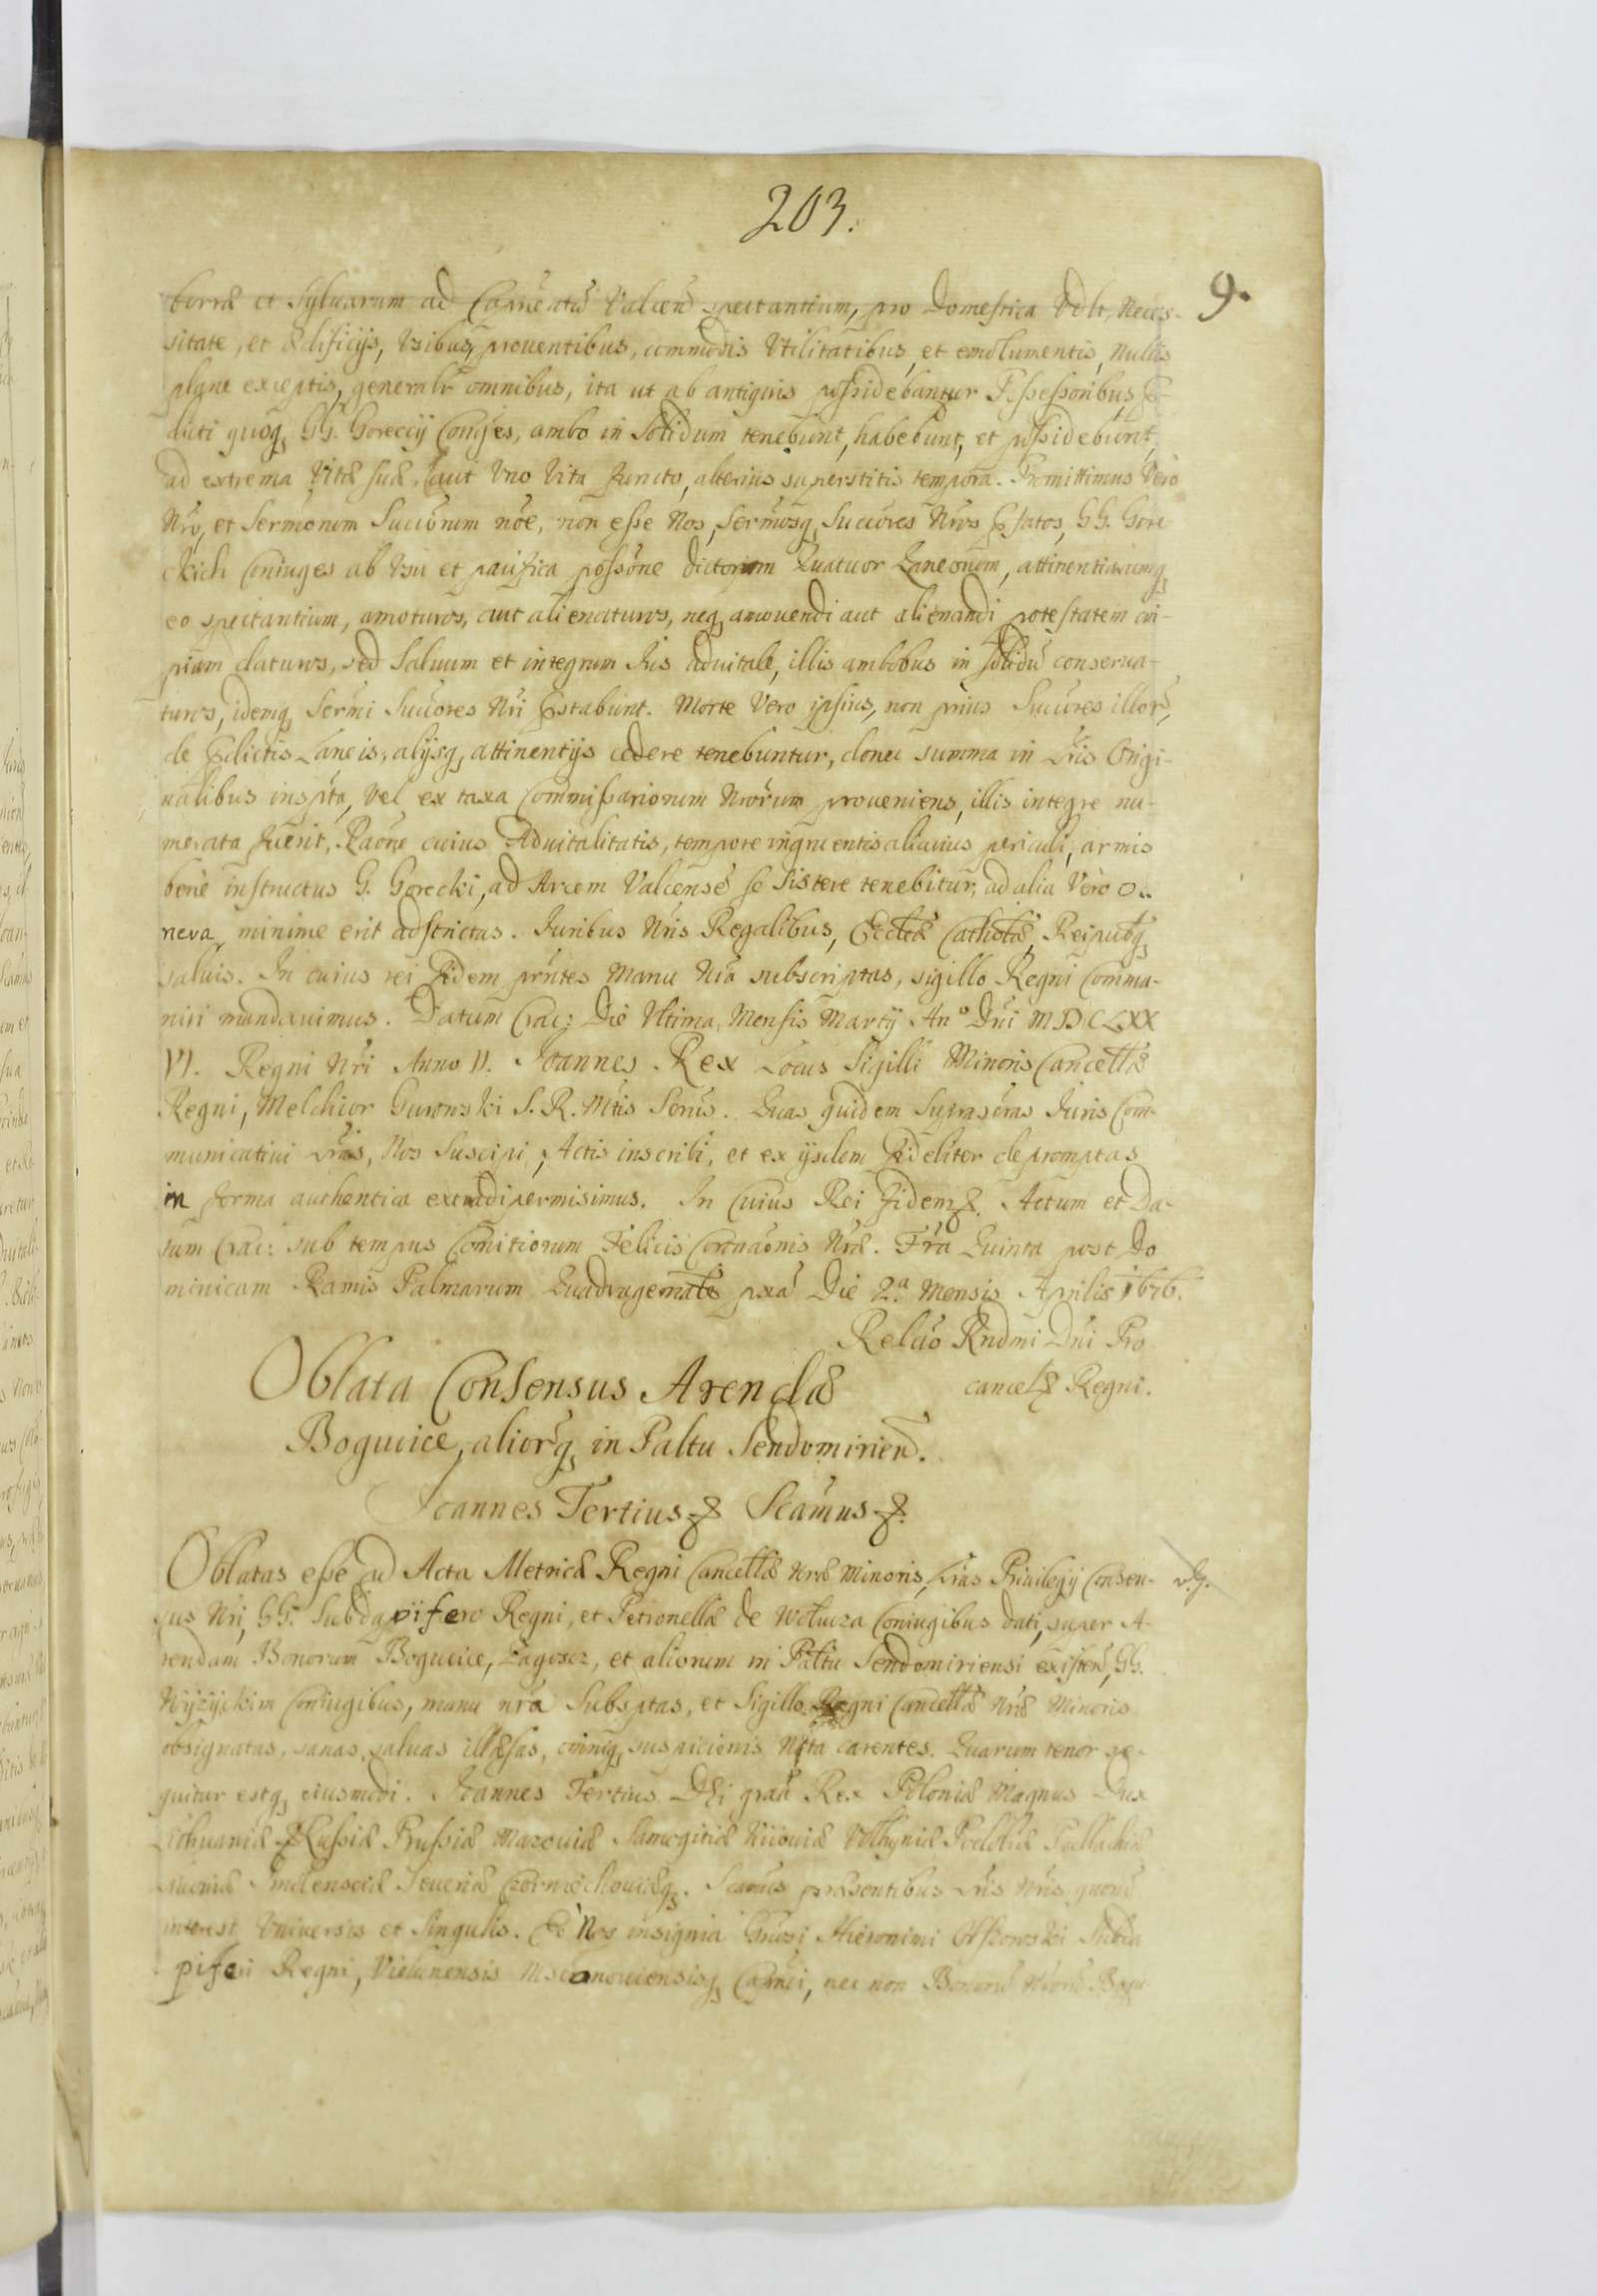 203.
9.
borræ et Syluarum ad Capneatũ Valcen̄ spectantium, pro Domestica Vdlt, Neces-
sitate, et ædificijs, Vsibus, prouentibus, commodis Vtilitatibus, et emolumentis, Nullis
plane exceptis, generalr omnibus, ita ut ab antiquis possidebantur Possessoribus,
dicti quoq, GG. Goreccy Coniges, ambo in Solidum tenebunt, habebunt, et possidebunt,
ad extrema Vitæ suæ, aut Vno Vita functo, alterius superstitis tempora. Promittimus Vero
Nro, et Sermonem Succorum nõe, non esse Nos, Sermosq, Succores Nros fatos, GG. Gore
ckich Coniuges ab Vsu et pacifica possõne dictorum Quatuor Laneorum, attinentiarumq,
eo spectantium, amoturos, aut alienaturos, neq, amouendi aut alienandi potestatem cui-
piam daturos, sed Saluum et integrum Jus aduitale, illis ambobus in solidũ conserua-
turos, idemq, Sermi Succores Nri p̃stabunt. Morte Vero ipsius, non prius Succores illorũ,
de p̃dictis Laneis, alijsq, attinentijs cedere tenebuntur, donec summa in Lris Origi-
nalibus inspta, Vel ex taxa Commissariorum Nrorum proueniens, illis integre nu-
merata fuerit, Raõne cuius Aduitalitatis, tempore ingruentis alicuius periculi, armis
bene instructus G. Gorecki, ad Arcem Valcensẽ se Sistere tenebitur, ad alia Vero o..
nera minime erit adstrictus. Juribus Nris Regalibus, Ecclæ Catholcæ, Reipubq,
saluis. In cuius rei fidem pr̃ntes Manu Nra subscriptas, sigillo Regni Commu-
niri mandauimus. Datum Crac: Die Vltima, Mensis Martij Anº Dni MDCLXX
VI. Regni Nri Anno II. Joannes Rex Locus Sigilli Minoris Cancellæ
Regni, Melchior Gurowski S. R. Mtis Scrius. Quas quidem Suprascras Juris Com-
municatiui Lras, Nos Suscipi, Actis inscribi, et ex ijsdem fideliter depromptas
in forma authentica extradi permisimus. In Cuius Rei fidem &. Actum et Da-
tum Crac: sub tempus Comitiorum Felicis Cornaõnis Nræ. Fra Quinta post Do
minicam Ramis Palmarum Quadragemale pxa Die 2ª Mensis Aprilis 1676.
Relao Rndmi Dni Pro
cancel& Regni.
Oblata Consensus Arendæ
Bogucice, aliorq, in Paltu Sendomirien̄.
Joannes Tertius & Scamus &.
Oblatas esse ad Acta Metricæ Regni Cancellæ Nræ Minoris, Lras Priuilegij Consen-
sus Nri, GG. Subdapifero Regni, et Petronellæ de Coniugibus dati, super A-
rendam Bonorum Bogucice, Zagosez, et aliorum in Paltu Sendomiriensi existen̄, GG.
Coniugibus, manu nra Subsptas, et Sigillo Regni Cancellæ Nræ Minoris
obsignatas, sanas, saluas illæsas, omniq, suspicionis Nota carentes. Quarum tenor se-
quitur estq, eiusmodi. Joannes Tertius Dei graã Rex Poloniæ Magnus Dux
Lithuaniæ Russiæ Prussiæ Mazouiæ Samogitiæ Kiiouiæ Volhyniæ Podoliæ Podlachiæ
Liuoniæ Smolensciæ Seueriæ Czerniechouiæq,. Scamus præsentibus Lris Nris quorũ
interest Vniuersis et Singulis. Nos insignia Gnosi Hieronimi Subda
piferi Regni, Vielunensis q, Capnei, nec non Bonorũ Nrorũ Bogu